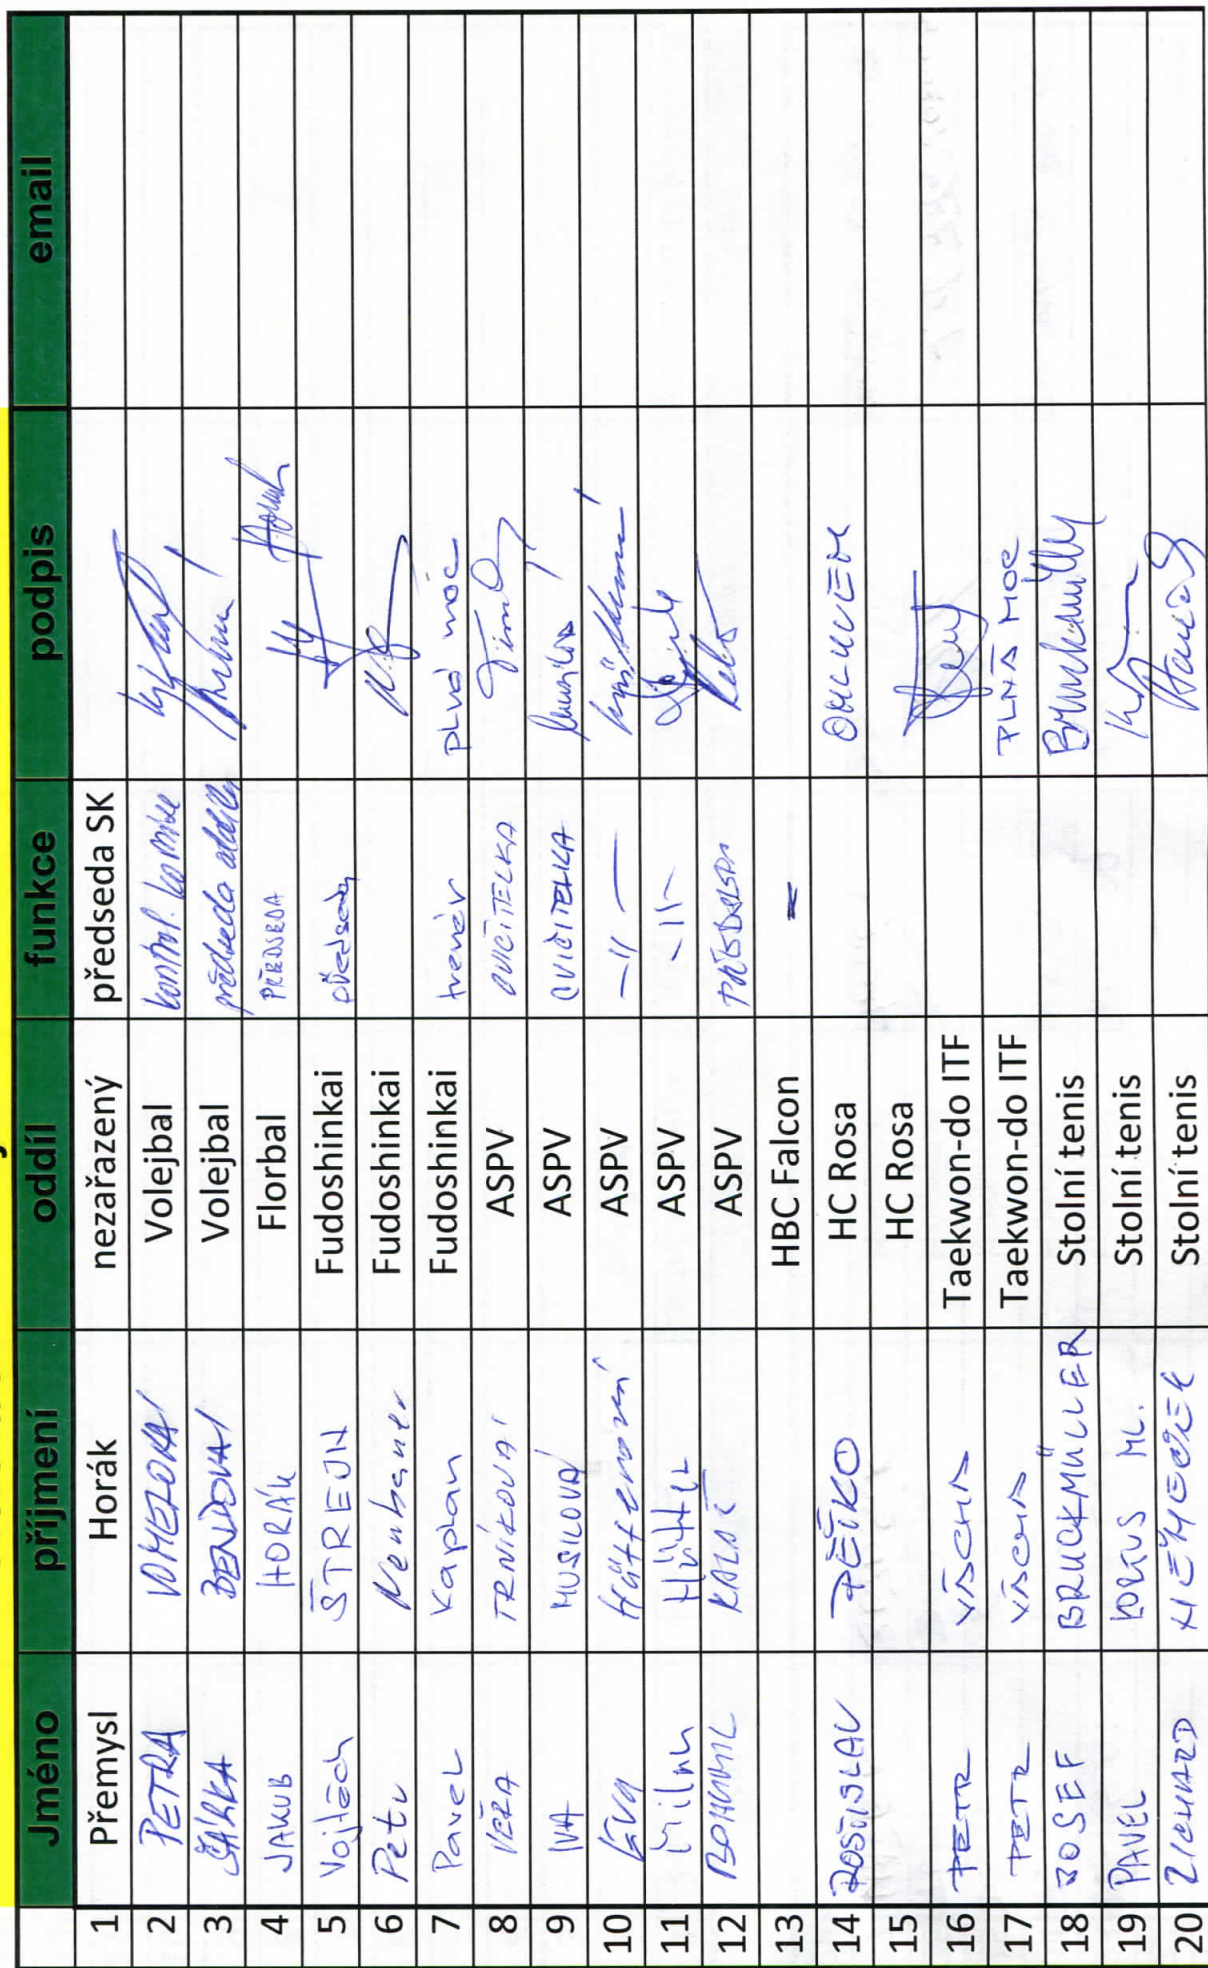 Jméno příjmení oddíl funkce podpis email
1 Přemysl Horák nezařazený předseda SK
2 PETRA Volejbal kontrol. komise
3 ŠÁRKA BENDOVÁ Volejbal předseda oddílu
4 JAKUB HORÁK Florbal PŘEDSEDA
5 Vojtěch ŠTREJN Fudoshinkai předseda
6 Petr Neubauer Fudoshinkai
7 Pavel Kaplan Fudoshinkai trenér plná moc
8 VĚRA TRNÍKOVÁ ASPV CVIČITELKA
9 IVA MUSILOVÁ ASPV CVIČITELKA
10 Hüttnerová ASPV -11-
11 Milan ASPV -11-
12 BOHUMIL ASPV PŘEDSEDA
13 HBC Falcon
14 ROSTISLAV HC Rosa OMLUVEN
15 HC Rosa
16 PETR VÁCHA Taekwon-do ITF
17 PETR VÁCHA Taekwon-do ITF PLNÁ MOC
18 JOSEF BRUCKMÜLLER Stolní tenis Bruckmüller
19 PAVEL ML. Stolní tenis
20 RICHARD NĚMEČEK Stolní tenis